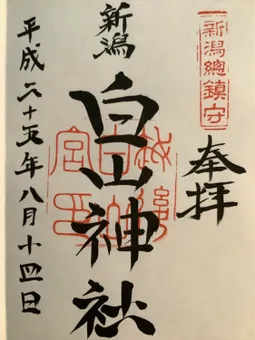 新潟總鎮守
奉拝
新潟
白山神社
越後
白山
宮印
平成二十五年八月十四日